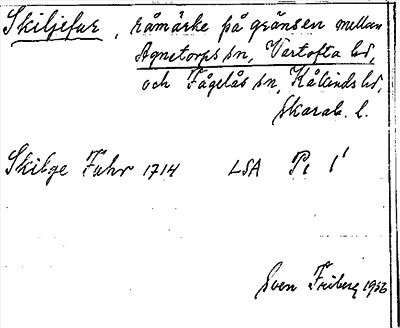 Skiljefur, råmärke på gränsen mellan
Agnetorps sn, Vartofta hd,
och Fågelås sn, Kåkinds hd,
Skarab. l.
Skilge Fuhr 1714 LSA P1 1'
Sven Friberg 1956